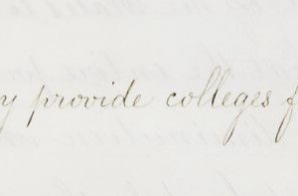 y provide colleges f